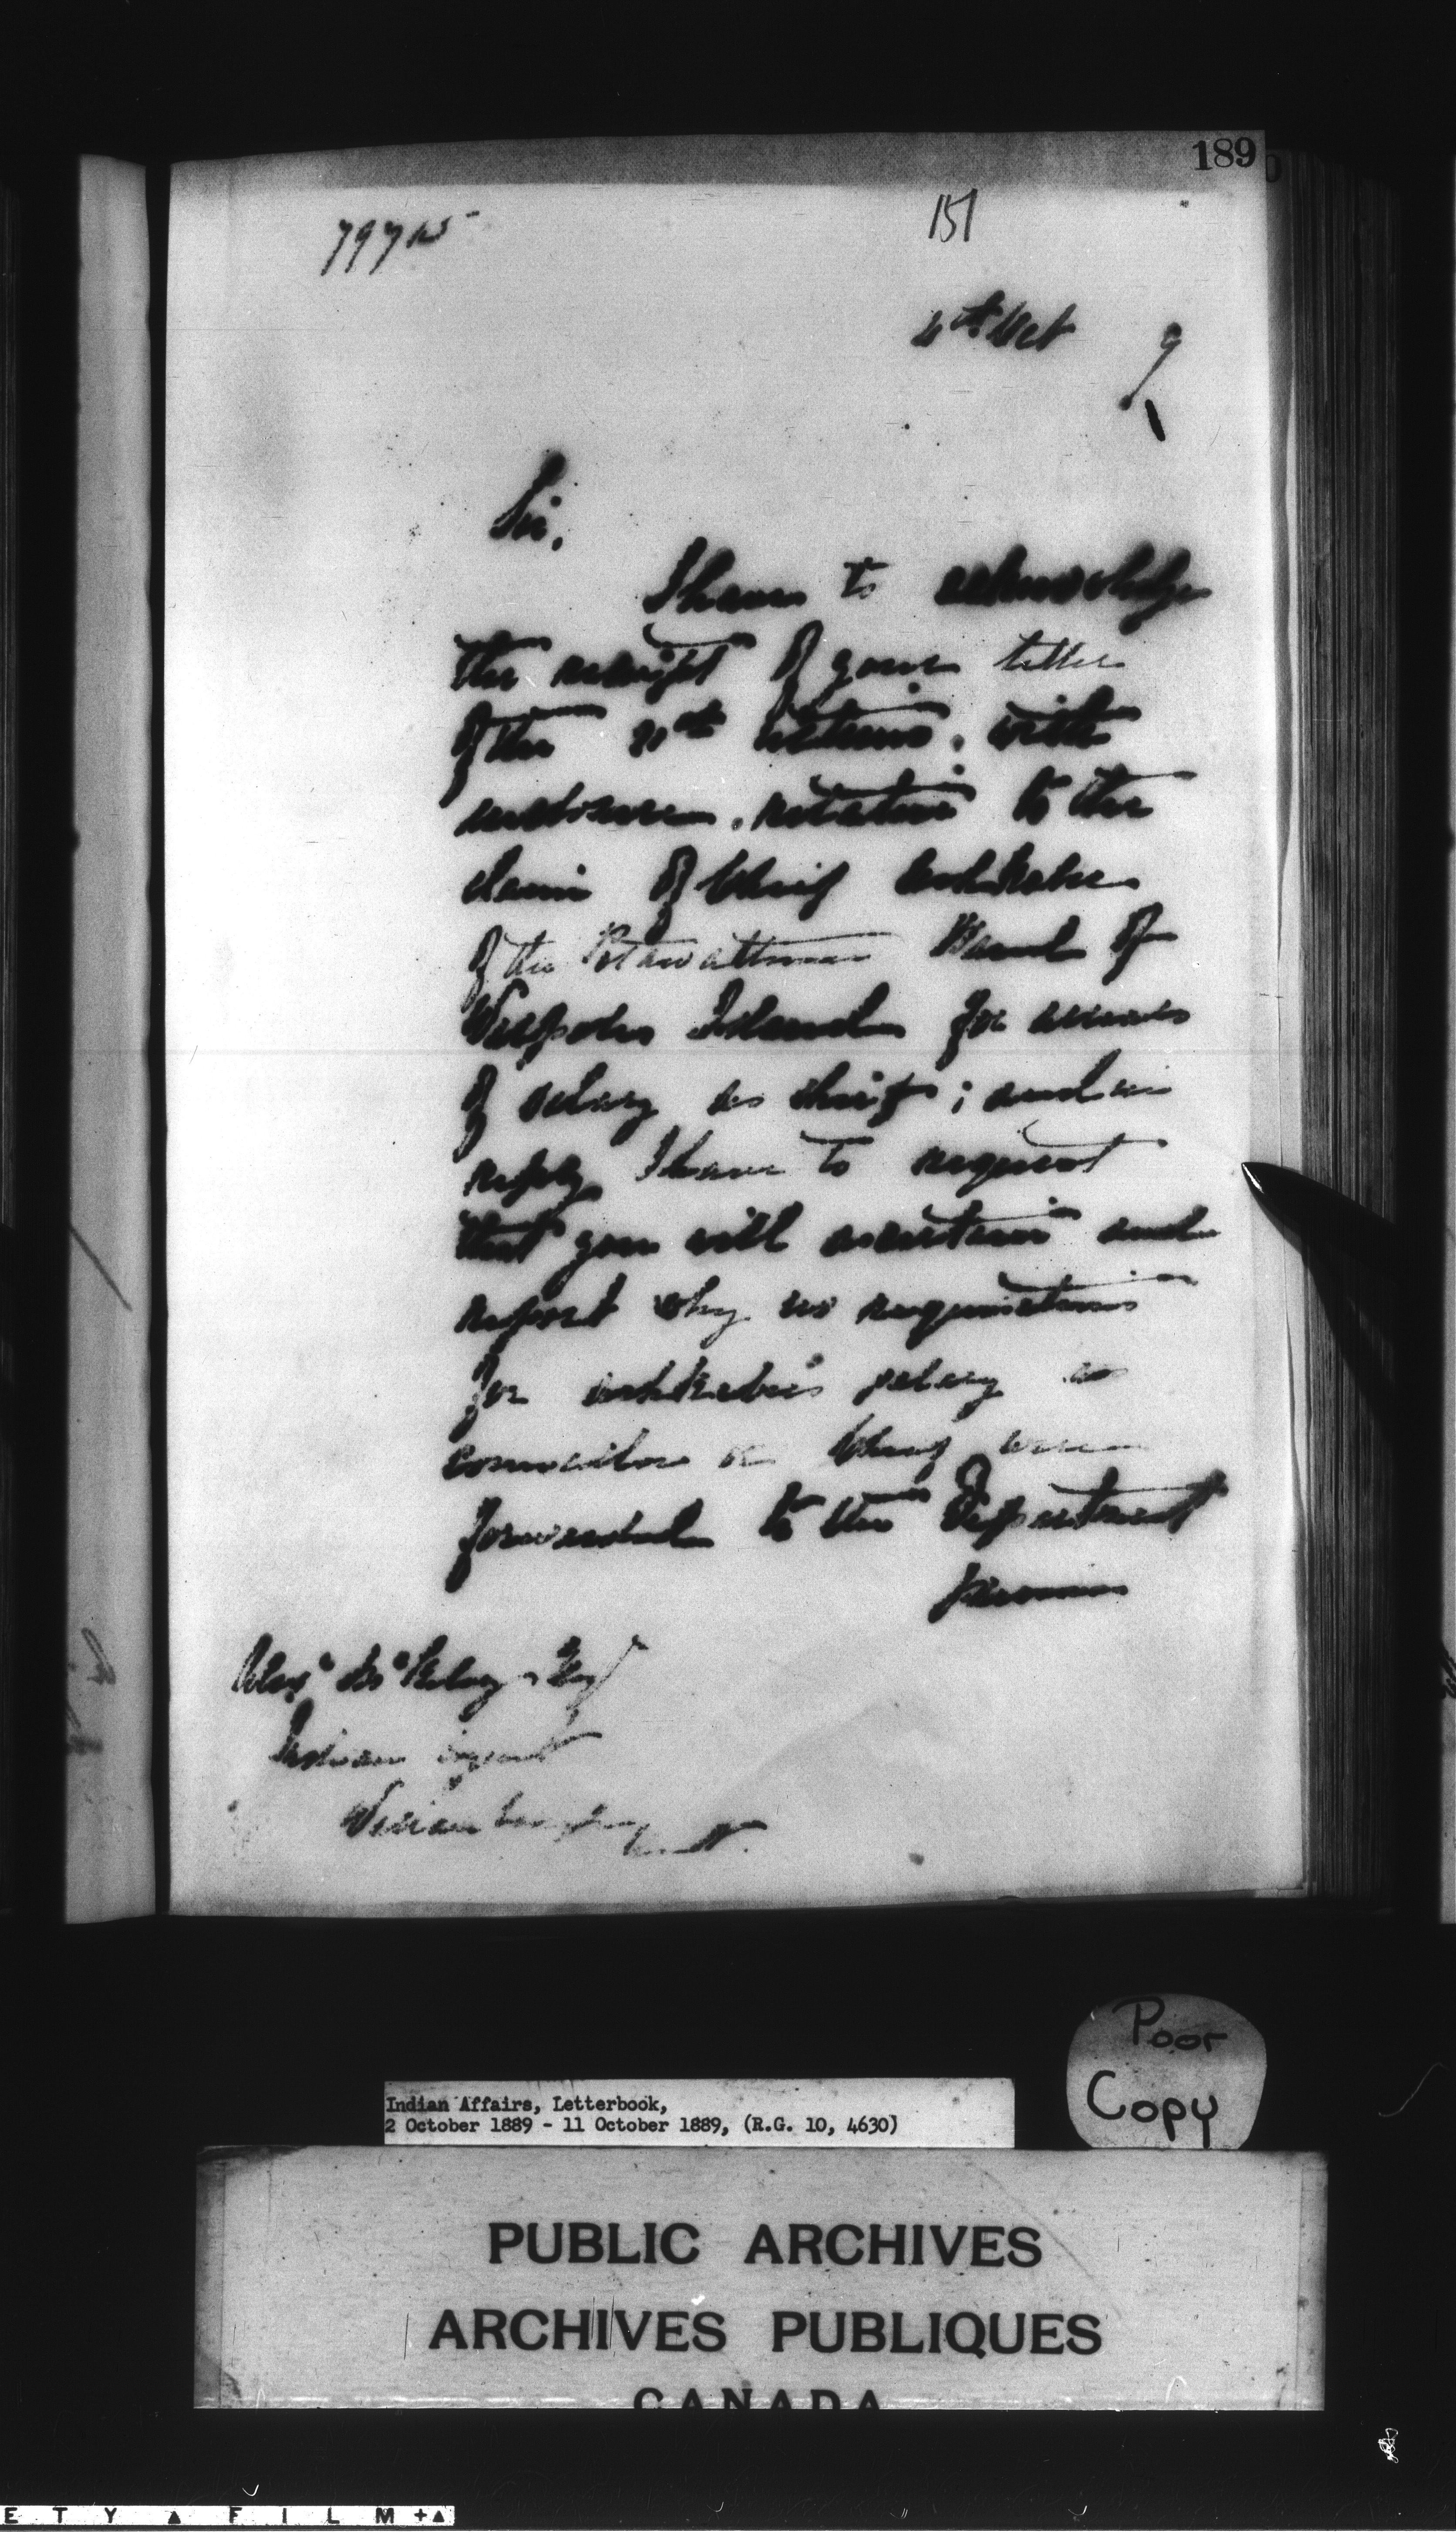 189
151
4th Oct 9
Sir,
I have to acknowledge
the receipt of your letter
of the ultimo, with
enclosure, relative to the
claim of Chief Ashkebee
of the Potawattomie Band of
Walpole Island for arrears
of salary as chief; and in
reply I have to request
that you will ascertain and
report why no requisitions
for Ashkebee's salary as
councillor or Chief were
forwarded to the Department
Alexr McKelvey, Esq
Indian Agent
Ont.
Poor
Copy
Indian Affairs, Letterbook,
2 October 1889 - 11 October 1889, (R.G. 10, 4630)
PUBLIC ARCHIVES
ARCHIVES PUBLIQUES
CANADA
E T Y ▲ F I L M +▲